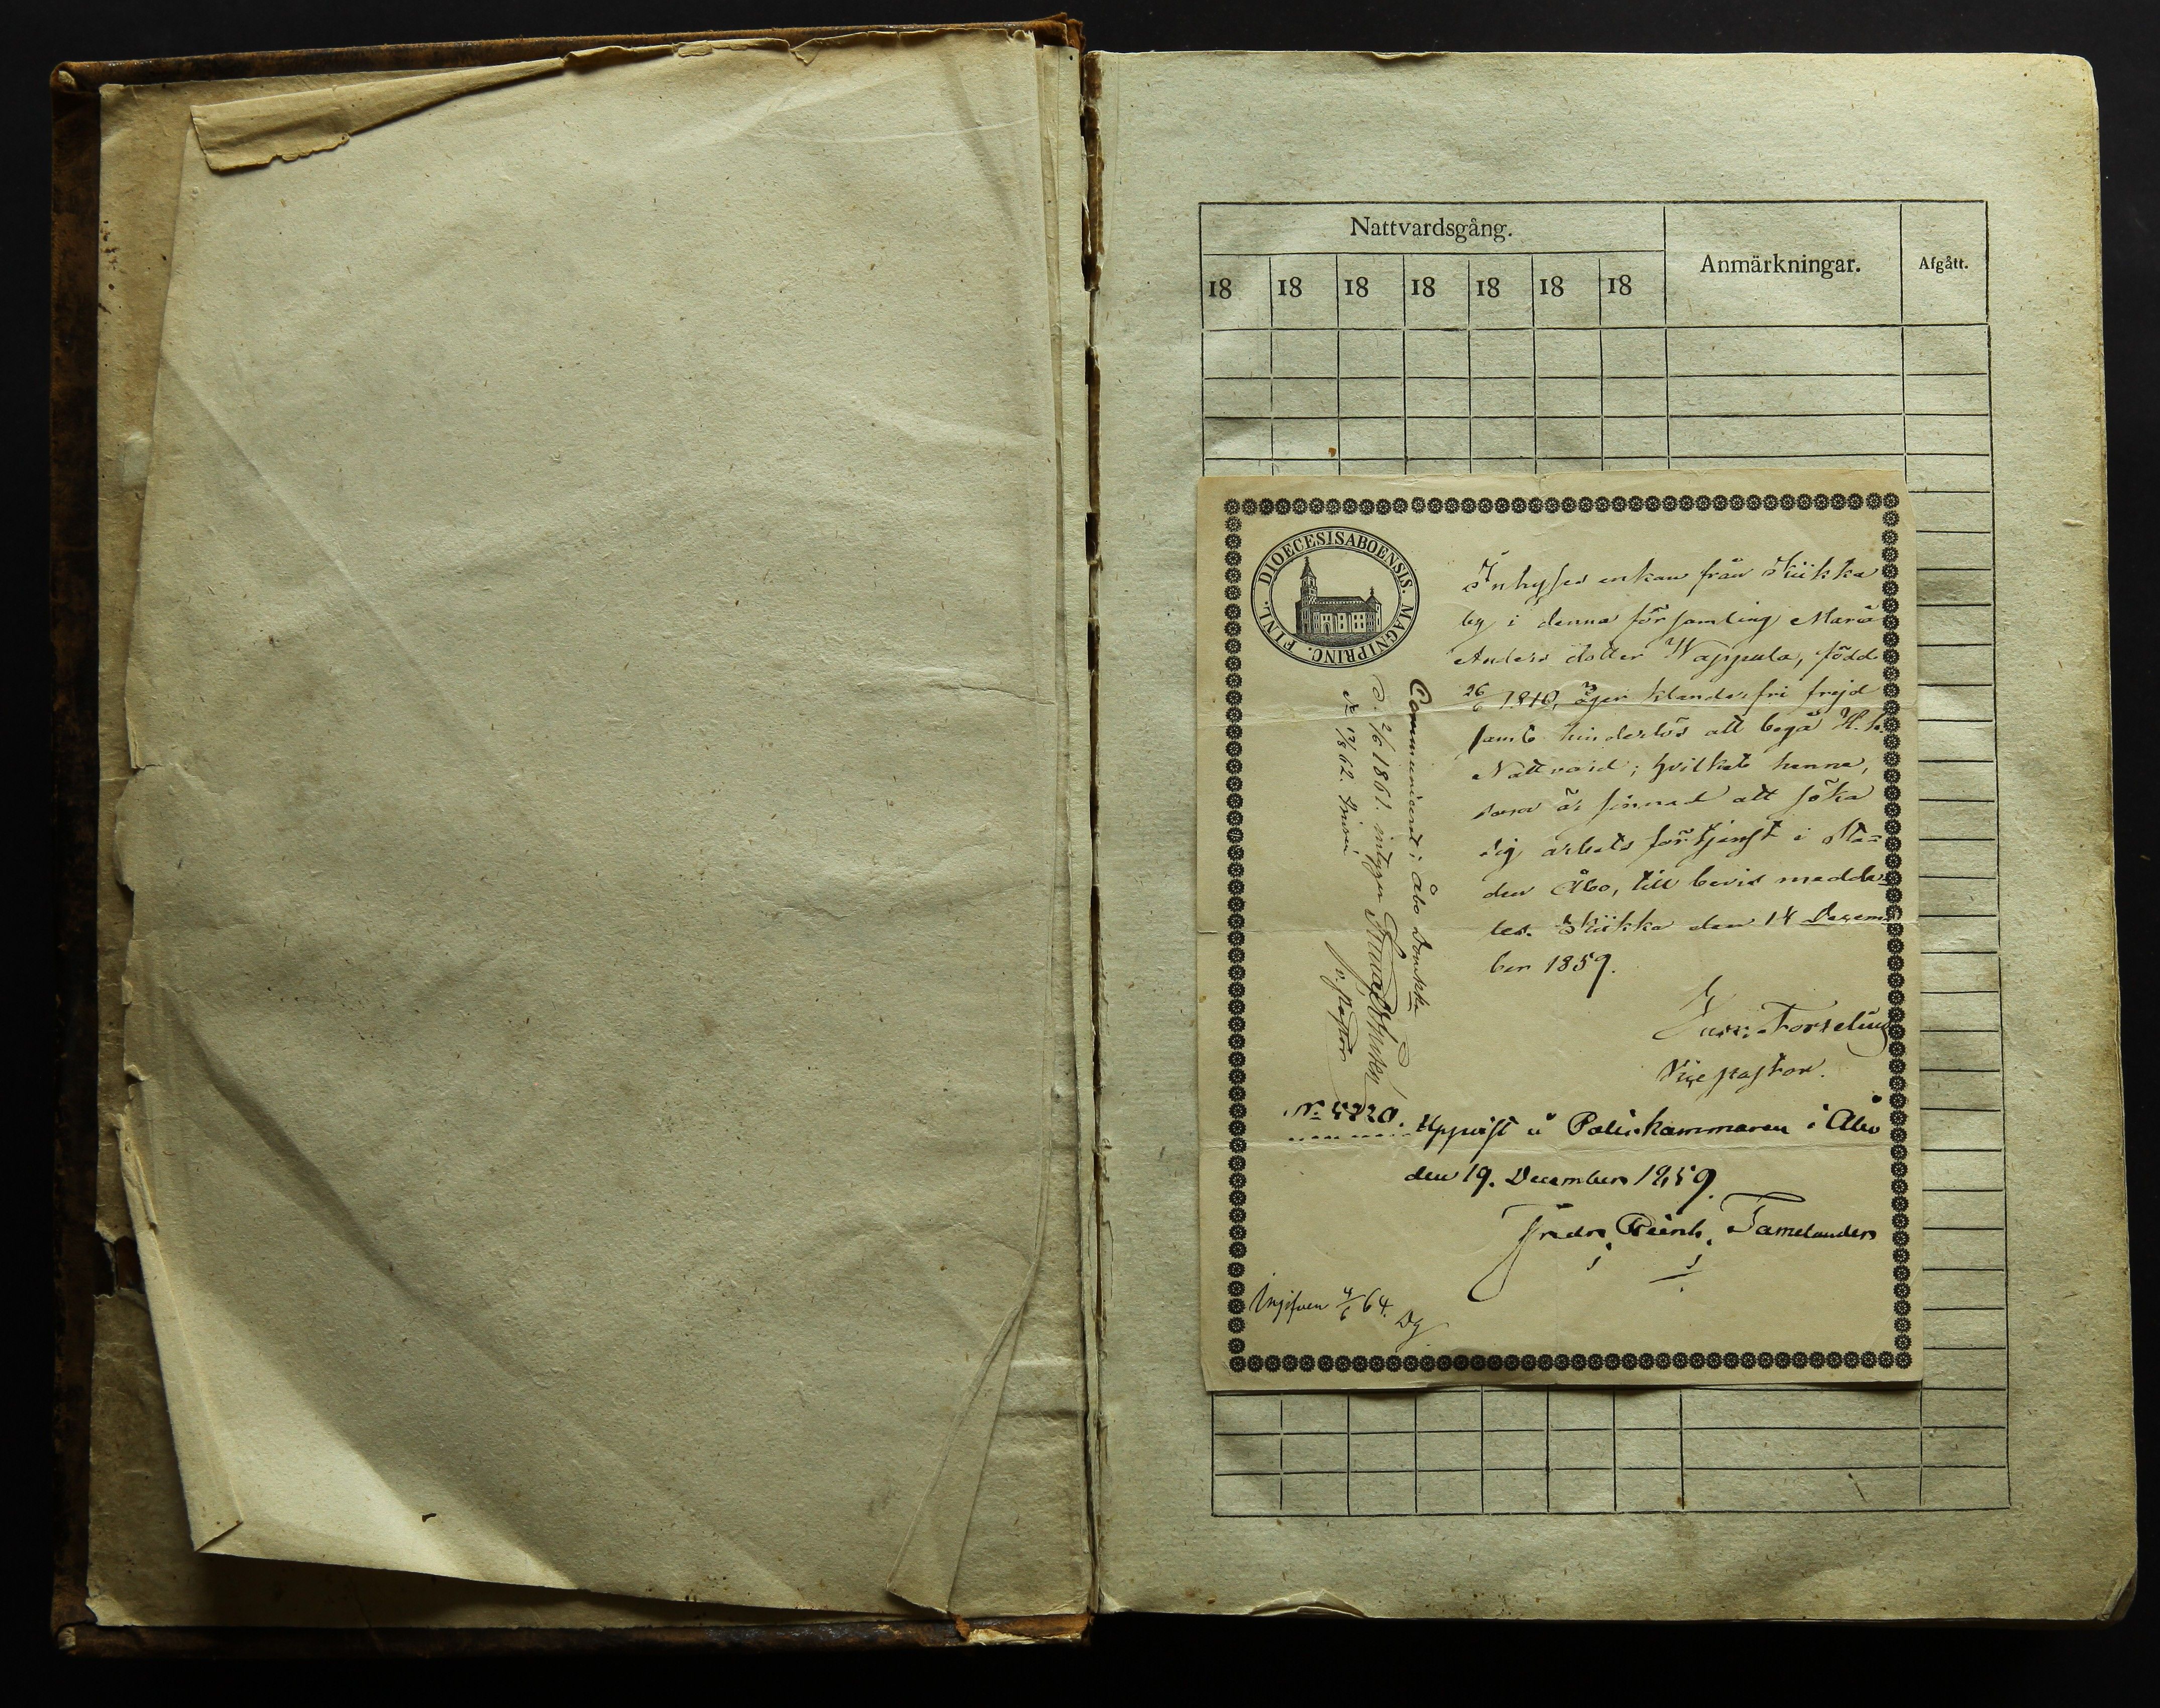 Nattvardsgång.
Anmärkningar.
Afgått.
18 18 18 18 18 18 18
DIOECESISABOENSIS. MAGNIPRINC. FINL.
Inhyses enkan från Kiikka
by i denna församling Maria
Anders dotter Wappula, född
26/6 1810, äger klanderfri frejd
samt hinderlös att begå H. h.
Nattvard; hvilket henne,
som är sinnad att söka
sig arbets förtjenst i Sta=
den Åbo, till bevis medde=
les. Kiikka den 14 Decem=
ber 1859.
Forselius
Vice pastor.
Communicerat i Åbo Domkka
d. 2/6 1861 intygar
v. pastor
12/8 62.
No 4220. Uppvist i Poliskammaren i Åbo
den 19. December 1859.
Fredr. Reinh. Tamelander
Ingifven 4/6 64. Dg.